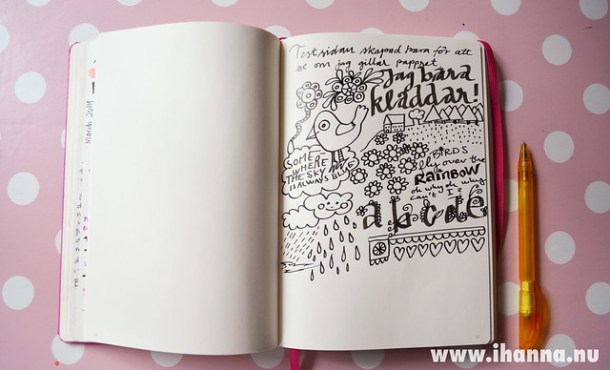 March 2014
Testsidan skapad bara för att
se om jag gillar pappret
Jag bara
kladdar!
SOME
WHERE
THE SKY
IS ALWAYS BLUE
BIRDS
fly over the
RAiNBOW
oh why oh why
can't I?
abcde
www.ihanna.nu